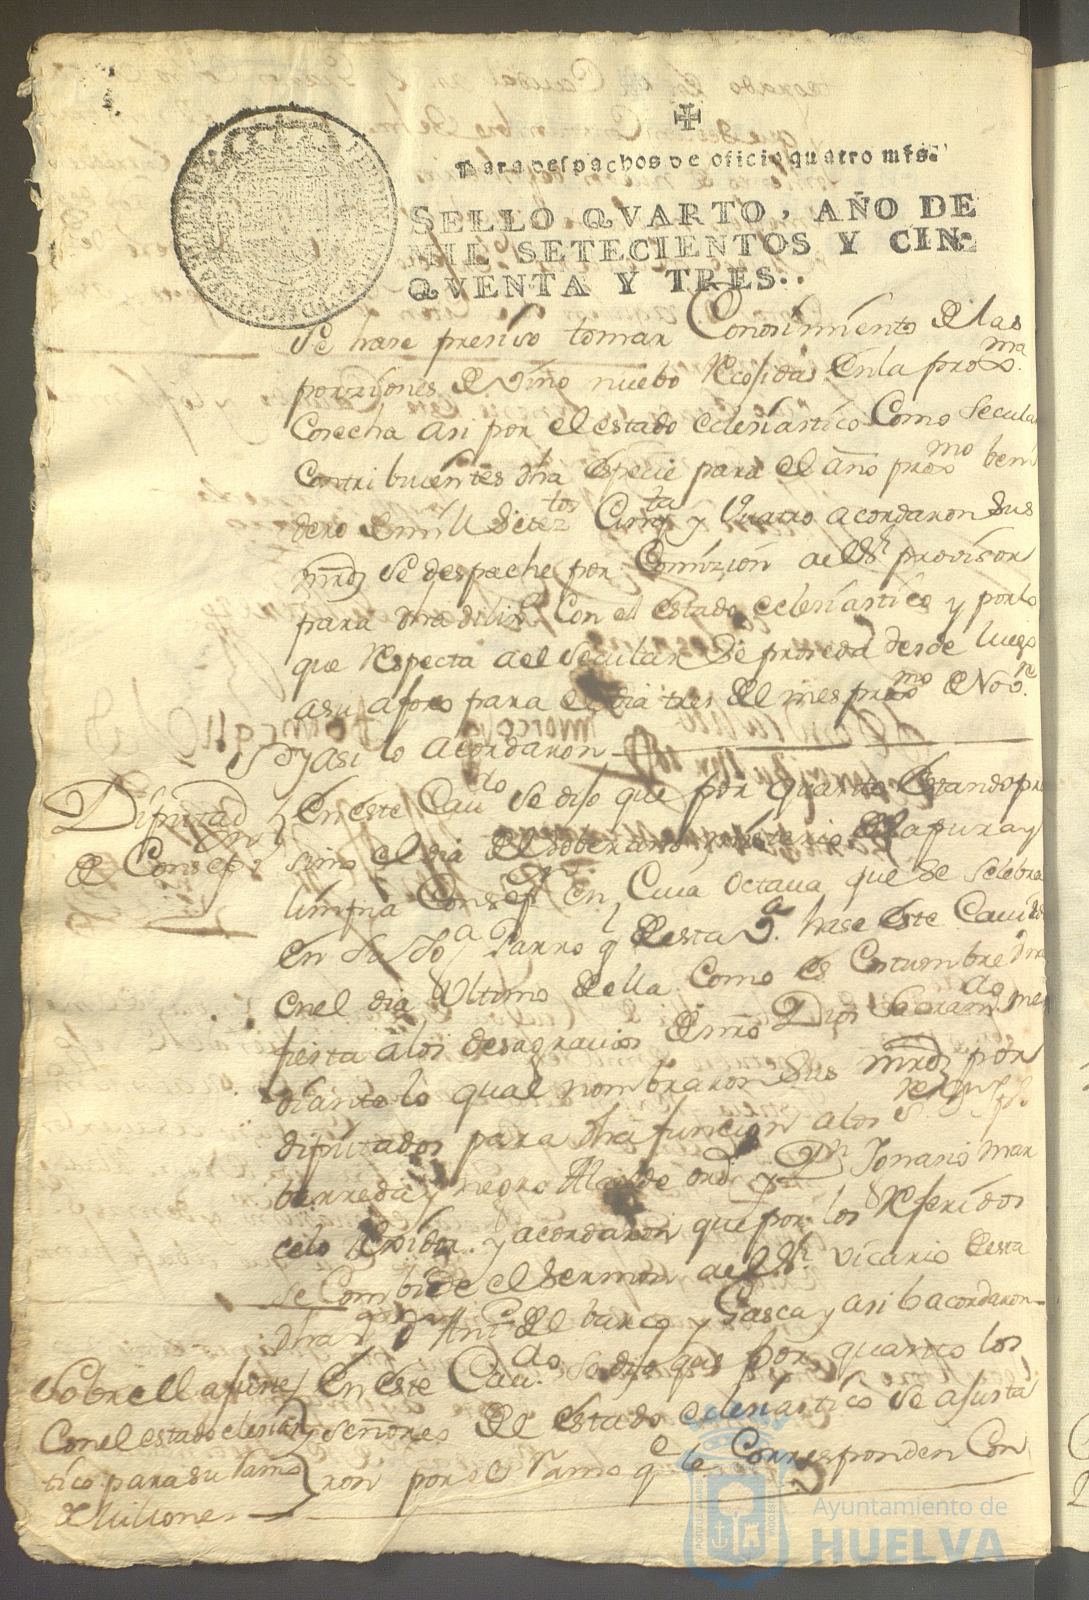 Para despachos de oficio quatro mrs.
SELLO QVARTO, AÑO DE
MIL SETECIENTOS Y CIN-
QVENTA Y TRES..
se hase presiso tomar Conosimiento de las
porziones de vino nuebo Recojidas en la proxma
Cosecha asi por el estado eclesiastico Como Secular
Contribuientes dha Especie para el año proxmo beni
dero de mill Seteztos Cinqta y Quatro acordaron Sus
mrds Se despache por Comizion del Sr provisor
para dha dilixa Con el estado eclesiastico y por lo
que Respecta a el Secular Se proseda desde luego
a su aforo para el dia tres del mes proxmo de Nove
y asi lo acordaron
Diputads
de Consepn
En este Cavdo Se dijo que por quanto estando pro
simo el dia del Soberano misterio de la pura y
limpia Consepn en Cuia Octava que Se Selebra
en la Parroql de esta Va hase este Cauildo
en el dia Ultimo de ella Como es Costumbre
fiesta a los desagravios de nro Dios Sacramdo me
diante lo qual nombraron Sus mrds por
diputados para dha funcion a los Sres
barreda y negro Alcalde ordo y Dn Ignasio Mar
celo Rexidor y acordaron que por los Referidos
se Combide el Sermon a el Sr Vicario de esta
dha Va dn Anto del barco y Gasca y asi lo acordaron
Sobre el ajuste
Con el estado eclesias
tico para su Ramo
de Millones
En este Cavdo Se dijo que por quanto los
señores del estado eclesiastico Se ajusta
ron por el Ramo qe le Corresponden Con
Ayuntamiento de
HUELVA